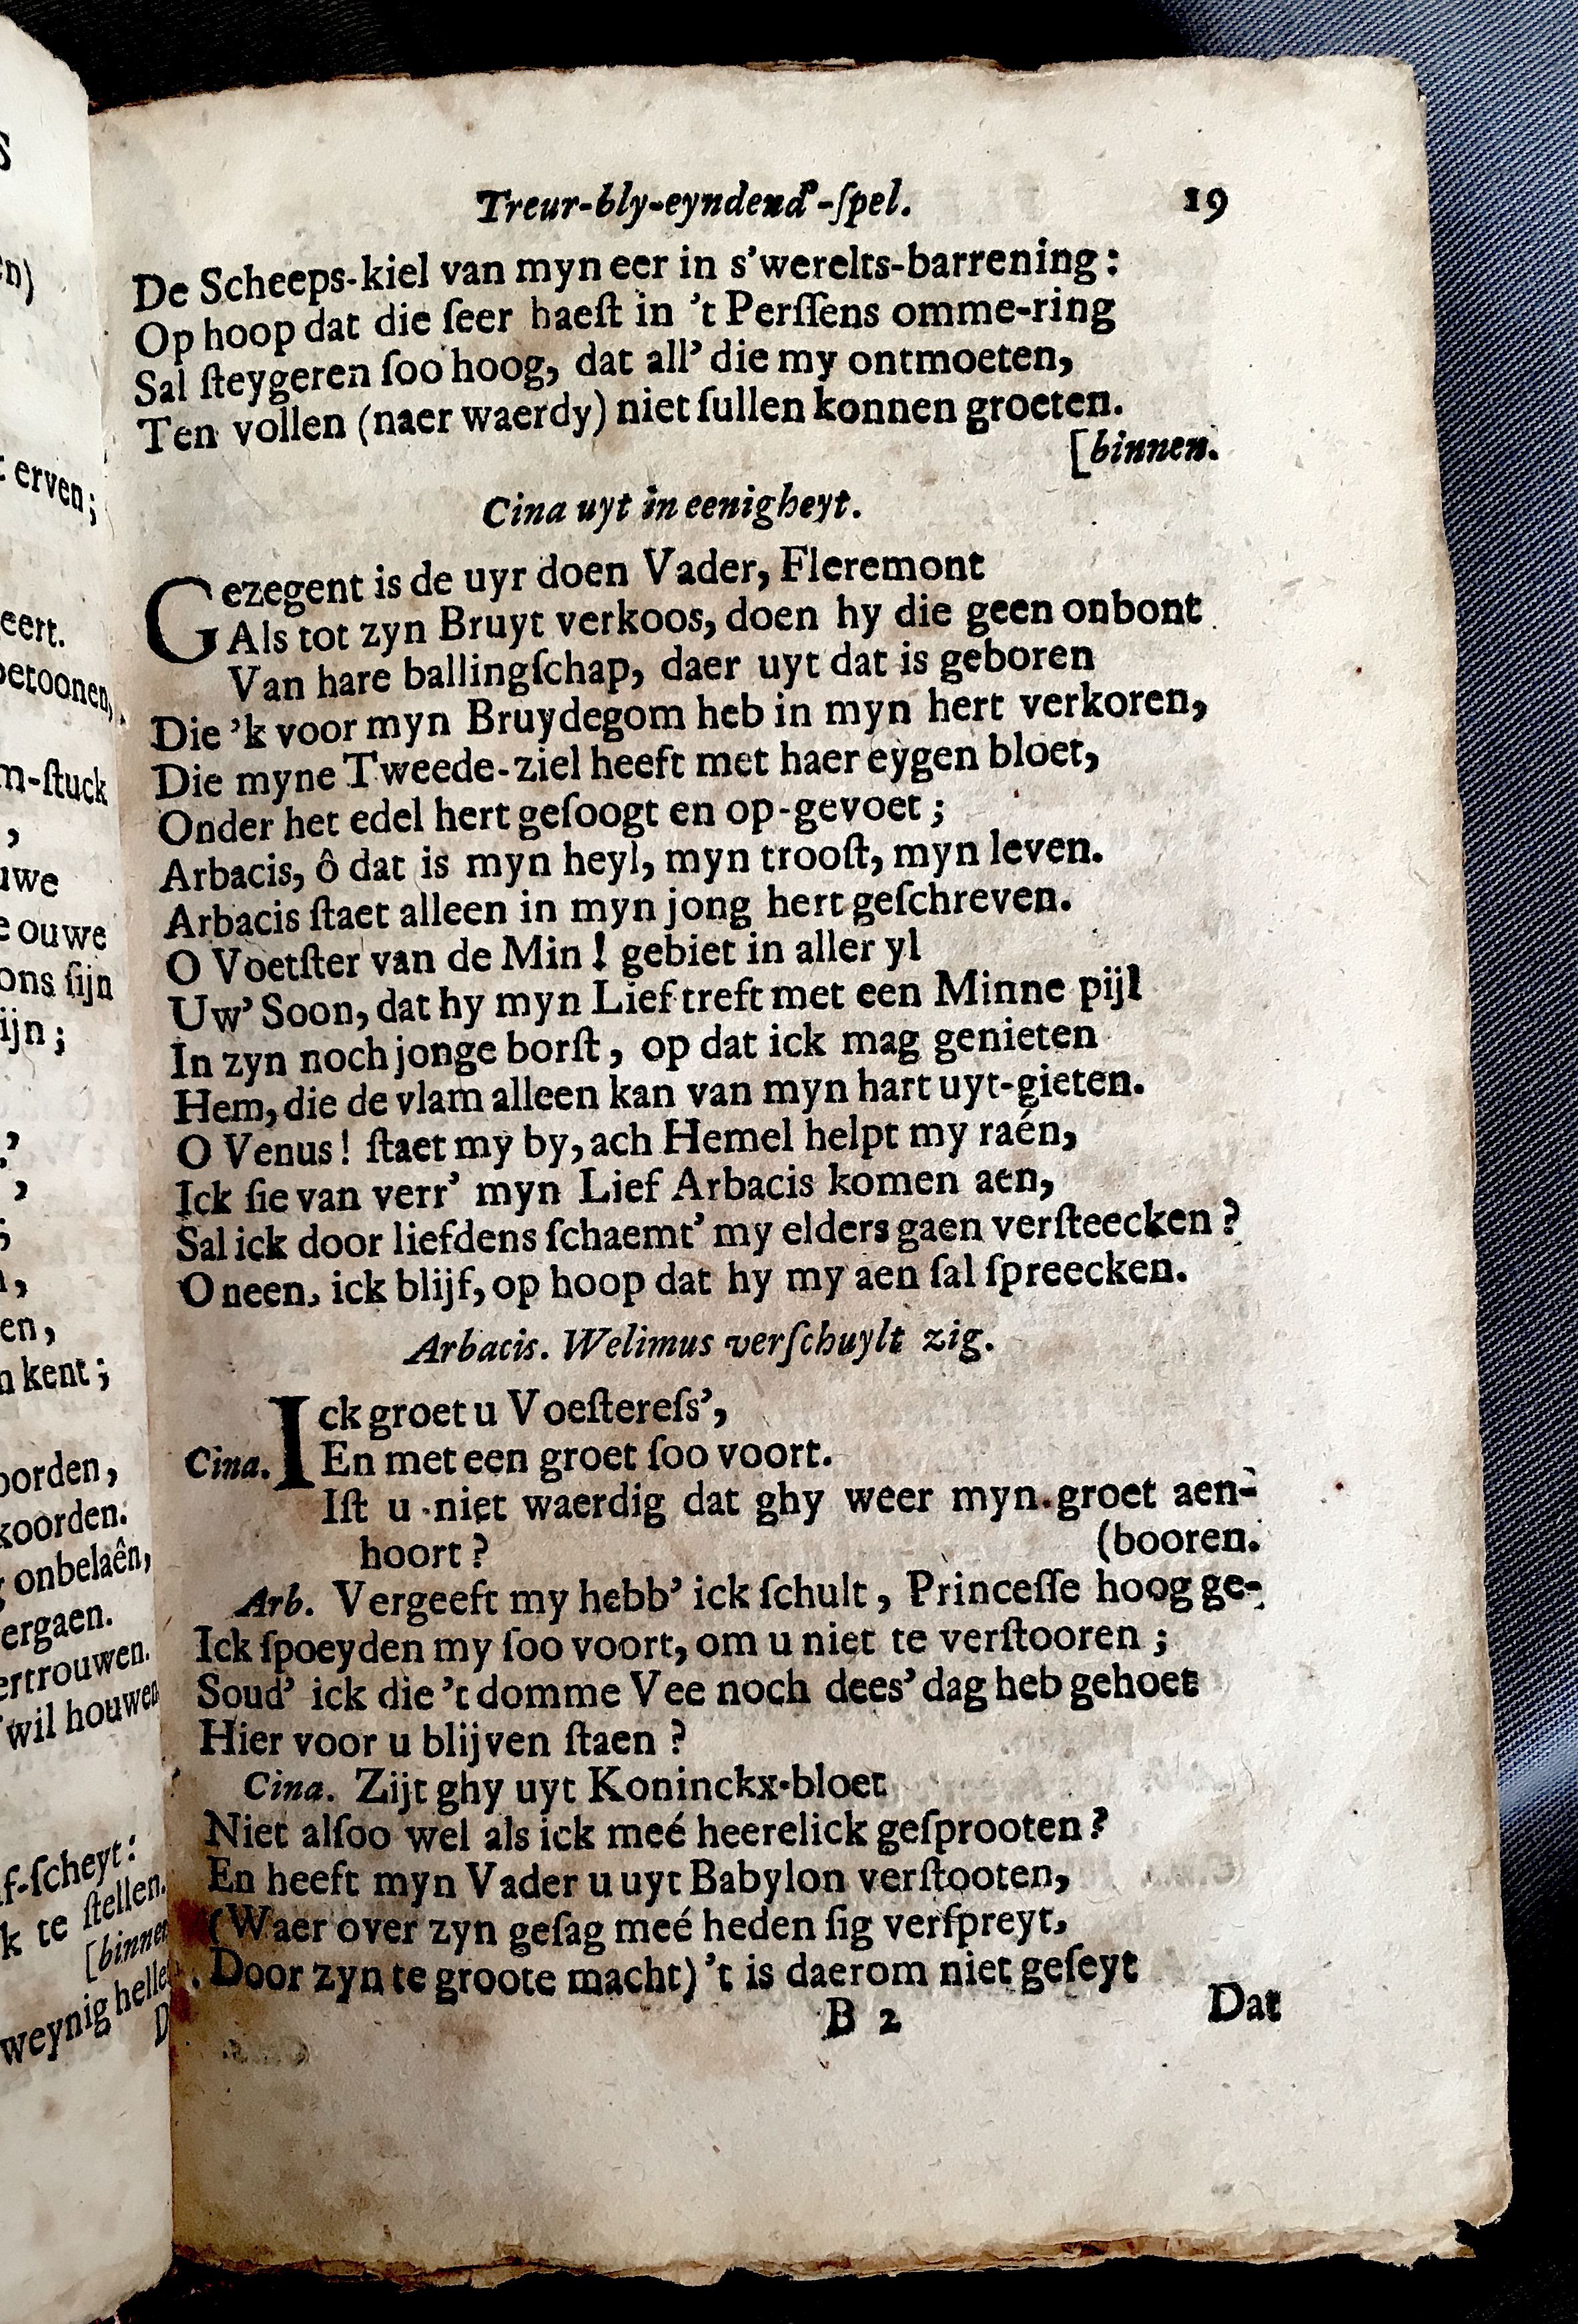 Treur-bly-eyndend'-ſpel. 19
De Scheeps-kiel van myn eer in s'werelts-barrening:
Op hoop dat die ſeer haeſt in 't Perſſens omme-ring
Sal ſteygeren ſoo hoog, dat all' die my ontmoeten,
Ten vollen (naer waerdy) niet ſullen konnen groeten.
[binnen.
Cina uyt in eenigheyt.
Gezegent is de uyr doen Vader, Fleremont
Als tot zyn Bruyt verkoos, doen hy die geen onbont
Van hare ballingſchap, daer uyt dat is geboren
Die 'k voor myn Bruydegom heb in myn hert verkoren,
Die myne Tweede-ziel heeft met haer eygen bloet,
Onder het edel hert geſoogt en op-gevoet;
Arbacis, ô dat is myn heyl, myn trooſt, myn leven.
Arbacis ſtaet alleen in myn jong hert geſchreven.
O Voetſter van de Min! gebiet in aller yl
Uw' Soon, dat hy myn Lief treft met een Minne pijl
In zyn noch jonge borſt, op dat ick mag genieten
Hem, die de vlam alleen kan van myn hart uyt-gieten.
O Venus! ſtaet my by, ach Hemel helpt my raén,
Ick ſie van verr' myn Lief Arbacis komen aen,
Sal ick door liefdens ſchaemt' my elders gaen verſteecken?
O neen, ick blijf, op hoop dat hy my aen ſal ſpreecken.
Arbacis. Welimus verſchuylt zig.
Ick groet u Voeſtereſs',
Cina. En met een groet ſoo voort.
Iſt u niet waerdig dat ghy weer myn groet aen-
hoort? (booren.
Arb. Vergeeft my hebb' ick ſchult, Princeſſe hoog ge-
Ick ſpoeyden my ſoo voort, om u niet te verſtooren;
Soud' ick die 't domme Vee noch dees' dag heb gehoet
Hier voor u blijven ſtaen?
Cina. Zijt ghy uyt Koninckx-bloet
Niet alſoo wel als ick meé heerelick geſprooten?
En heeft myn Vader u uyt Babylon verſtooten,
(Waer over zyn geſag meé heden ſig verſpreyt,
Door zyn te groote macht) 't is daerom niet geſeyt
B 2 Dat
erven;
eert.
betoonen,
m-ſtuck
uwe
ouwe
ons ſijn
ijn;
en,
kent;
oorden,
koorden.
onbelaên,
ergaen.
ertrouwen.
wil houwen
f-ſcheyt:
k te ſtellen.
[binnen
weynig helle
D